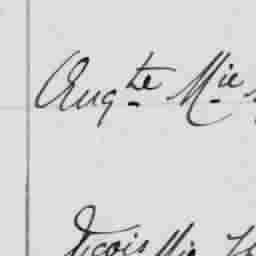 Augte Mie
Fcois Mie